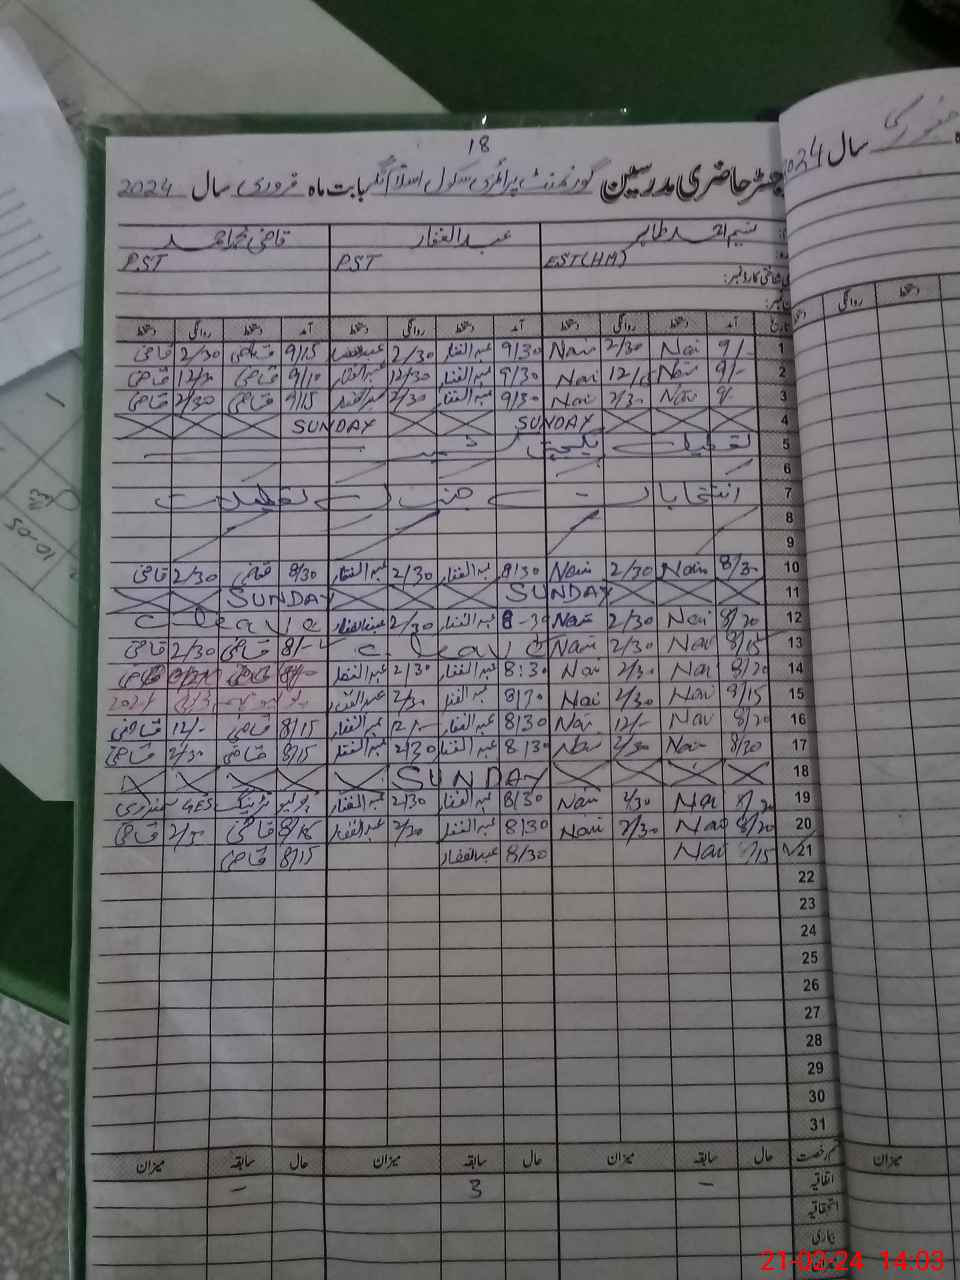 18
رجسٹر حاضری مدرسین گورنمنٹ پرائمری سکول اسلام نگر بابت ماہ فروری سال 2024
سال 2024
نسیم احمد طاہر عبدالغفار قاضی محمد احمد
EST(HM) PST PST
شناختی کارڈ نمبر:
تاریخ آمد دستخط روانگی دستخط آمد دستخط روانگی دستخط آمد دستخط روانگی دستخط
1 9/- Nasi 2/30 Nasi 9/30 عبدالغفار 2/30 عبدالغفار 9/15 قاضی 2/30 قاضی
2 9/- Nasi Nasi 9/30 عبدالغفار 12/30 عبدالغفار 9/10 قاضی 12/30 قاضی
3 9/- Nasi 2/30 Nasi 9/30 عبدالغفار 2/30 عبدالغفار 9/15 قاضی 2/30 قاضی
4 SUNDAY SUNDAY
5 تعطیلات
6
7 انتخابات جنرل تعطیلات
8
9
10 8/30 Nasi 2/30 Nasi 8/30 عبدالغفار 2/30 عبدالغفار 8/30 قاضی 2/30 قاضی
11 SUNDAY SUNDAY
12 8/20 Nasi 2/30 Nasi 8-30 عبدالغفار 2/30 عبدالغفار C-leave
13 8/15 Nasi 2/30 Nasi C. leave 8/- قاضی 2/30 قاضی
14 8/20 Nasi 2/30 Nasi 8:30 عبدالغفار 2/30 عبدالغفار قاضی
15 8/15 Nasi 2/30 Nasi 8/30 عبدالغفار 2/30 عبدالغفار 2024
16 8/20 Nasi 12/- Nasi 8/30 عبدالغفار 12/- عبدالغفار 8/15 قاضی 12/- قاضی
17 8/30 Nasi 2/30 Nasi 8/30 عبدالغفار 2/30 عبدالغفار 8/15 قاضی 2/30 قاضی
18 SUNDAY
19 8/20 Nasi 2/30 Nasi 8/30 عبدالغفار 2/30 عبدالغفار پولیو ٹریننگ GES
20 8/20 Nasi 2/30 Nasi 8/30 عبدالغفار 2/30 عبدالغفار 8/15 قاضی 2/30 قاضی
21 8/15 Nasi 8/30 عبدالغفار 8/15 قاضی
22
23
24
25
26
27
28
29
30
31
رخصت حال سابقہ میزان حال سابقہ میزان حال سابقہ میزان
اتفاقیہ - 3 -
استحقاقیہ
بیماری
میزان
21-02-24 14:03